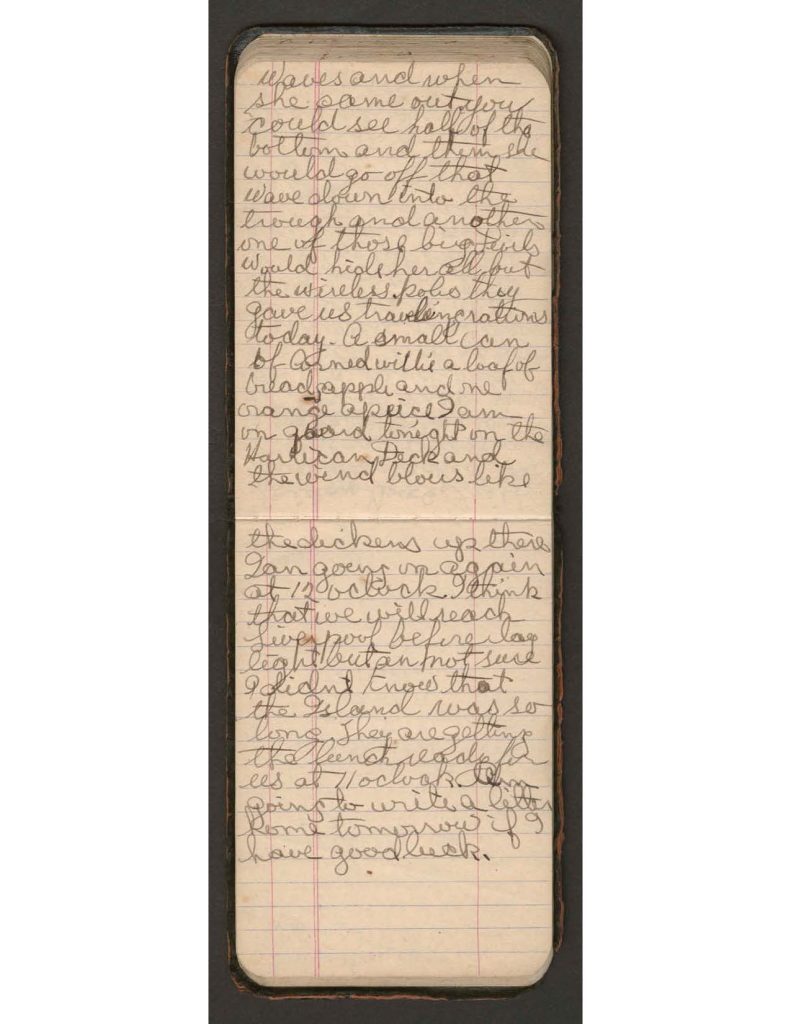 waves and when
she came out, you
could see half of the
bottom and then she
would go off that
wave down into the
trough and another
one of those big Devils
would hide her all but
the wireless poles they
gave us travelin rations
today. A small can
of Corned willie a loaf of
bread, apple and one
orange apiece I am
on guard tonight on the
Harrican Deck and
the wind blows like
the dickens up there
I am going on again
at 12 oclock. I think
that we will reach
Liverpool before day
light but am not sure
I didnt know that
the Island was so
long. They are getting
the lunch ready for
us at 11 oclock. Am
going to write a letter
home tomorrow if I
have good luck.